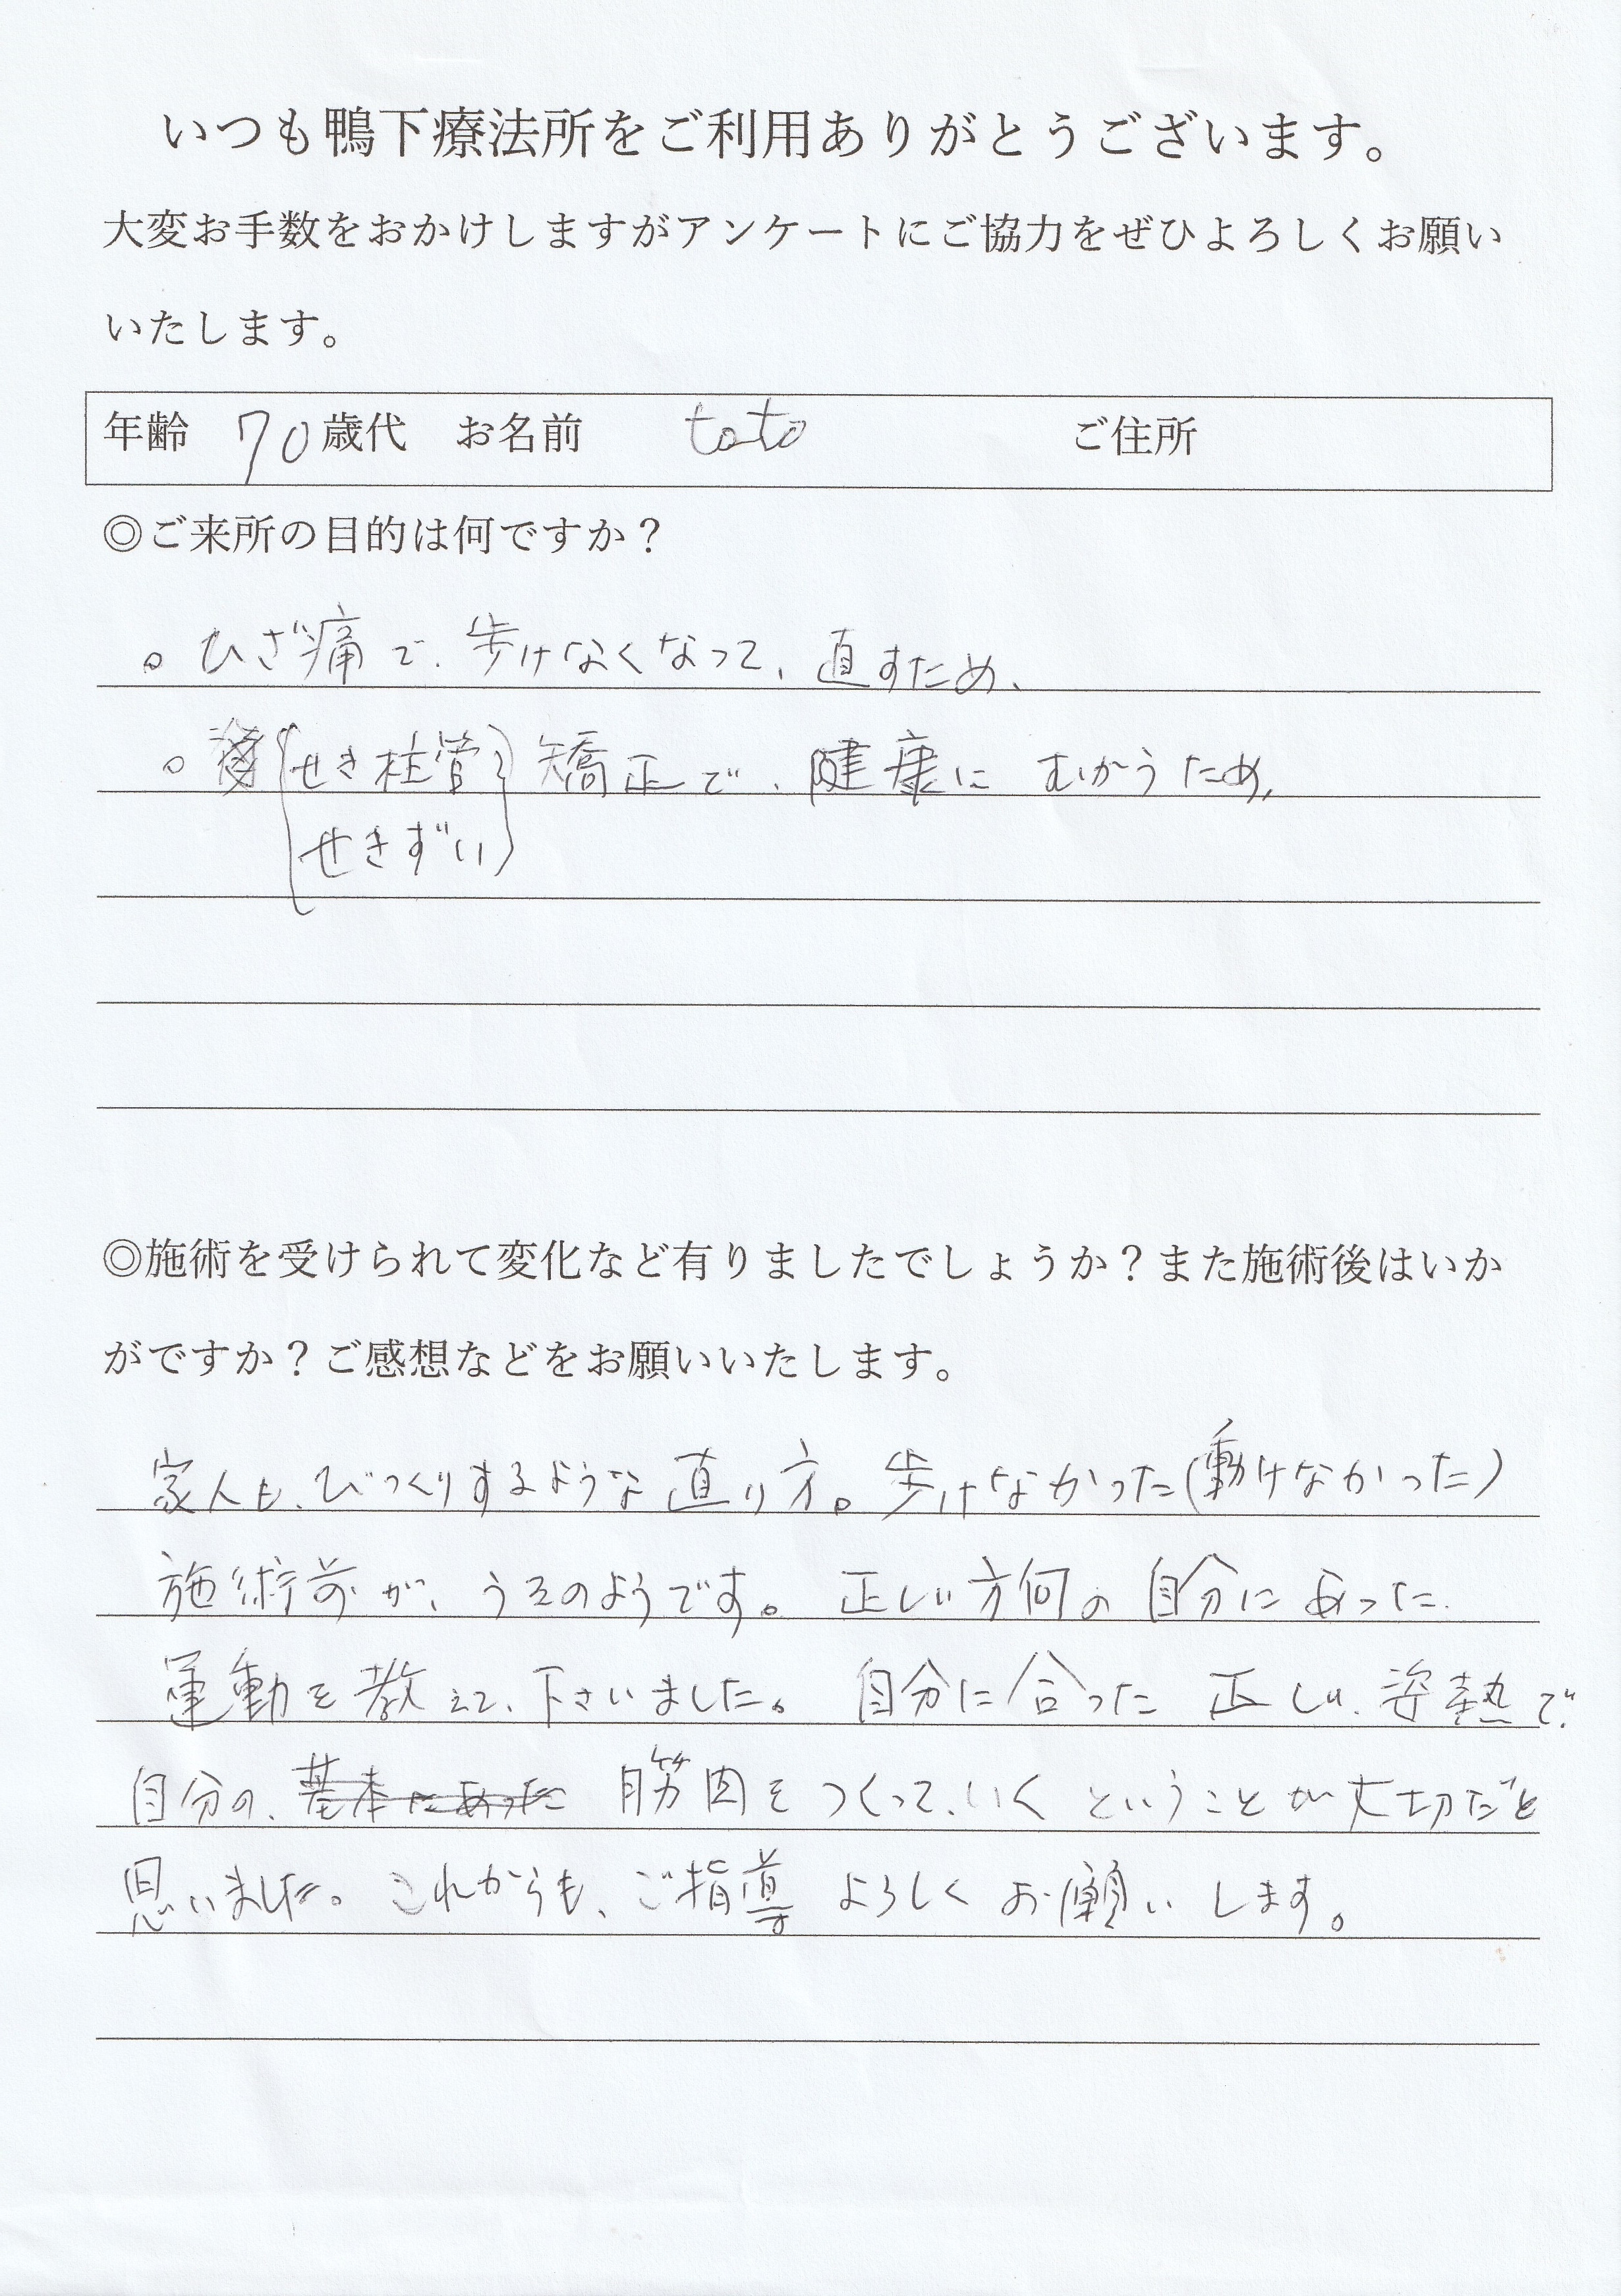 いつも鴨下療法所をご利用ありがとうございます。
大変お手数をおかけしますがアンケートにご協力をぜひよろしくお願い
いたします。
年齢 70歳代 お名前 toto ご住所
◎ご来所の目的は何ですか？
。ひざ痛で、歩けなくなって、直すため、
。(せき柱管)矯正で、健康に むかうため、
(せきずい)
◎施術を受けられて変化など有りましたでしょうか？また施術後はいか
がですか？ご感想などをお願いいたします。
家人も、びっくりするような直り方。歩けなかった(動けなかった)
施術前が、うそのようです。正しい方何の自分にあった
運動を教えて、下さいました。自分に合った 正しい、姿熱で、
自分の、基本にあった 筋肉をつくって、いくということが大切だと
思いました。これからも、ご指導 よろしく お願い します。